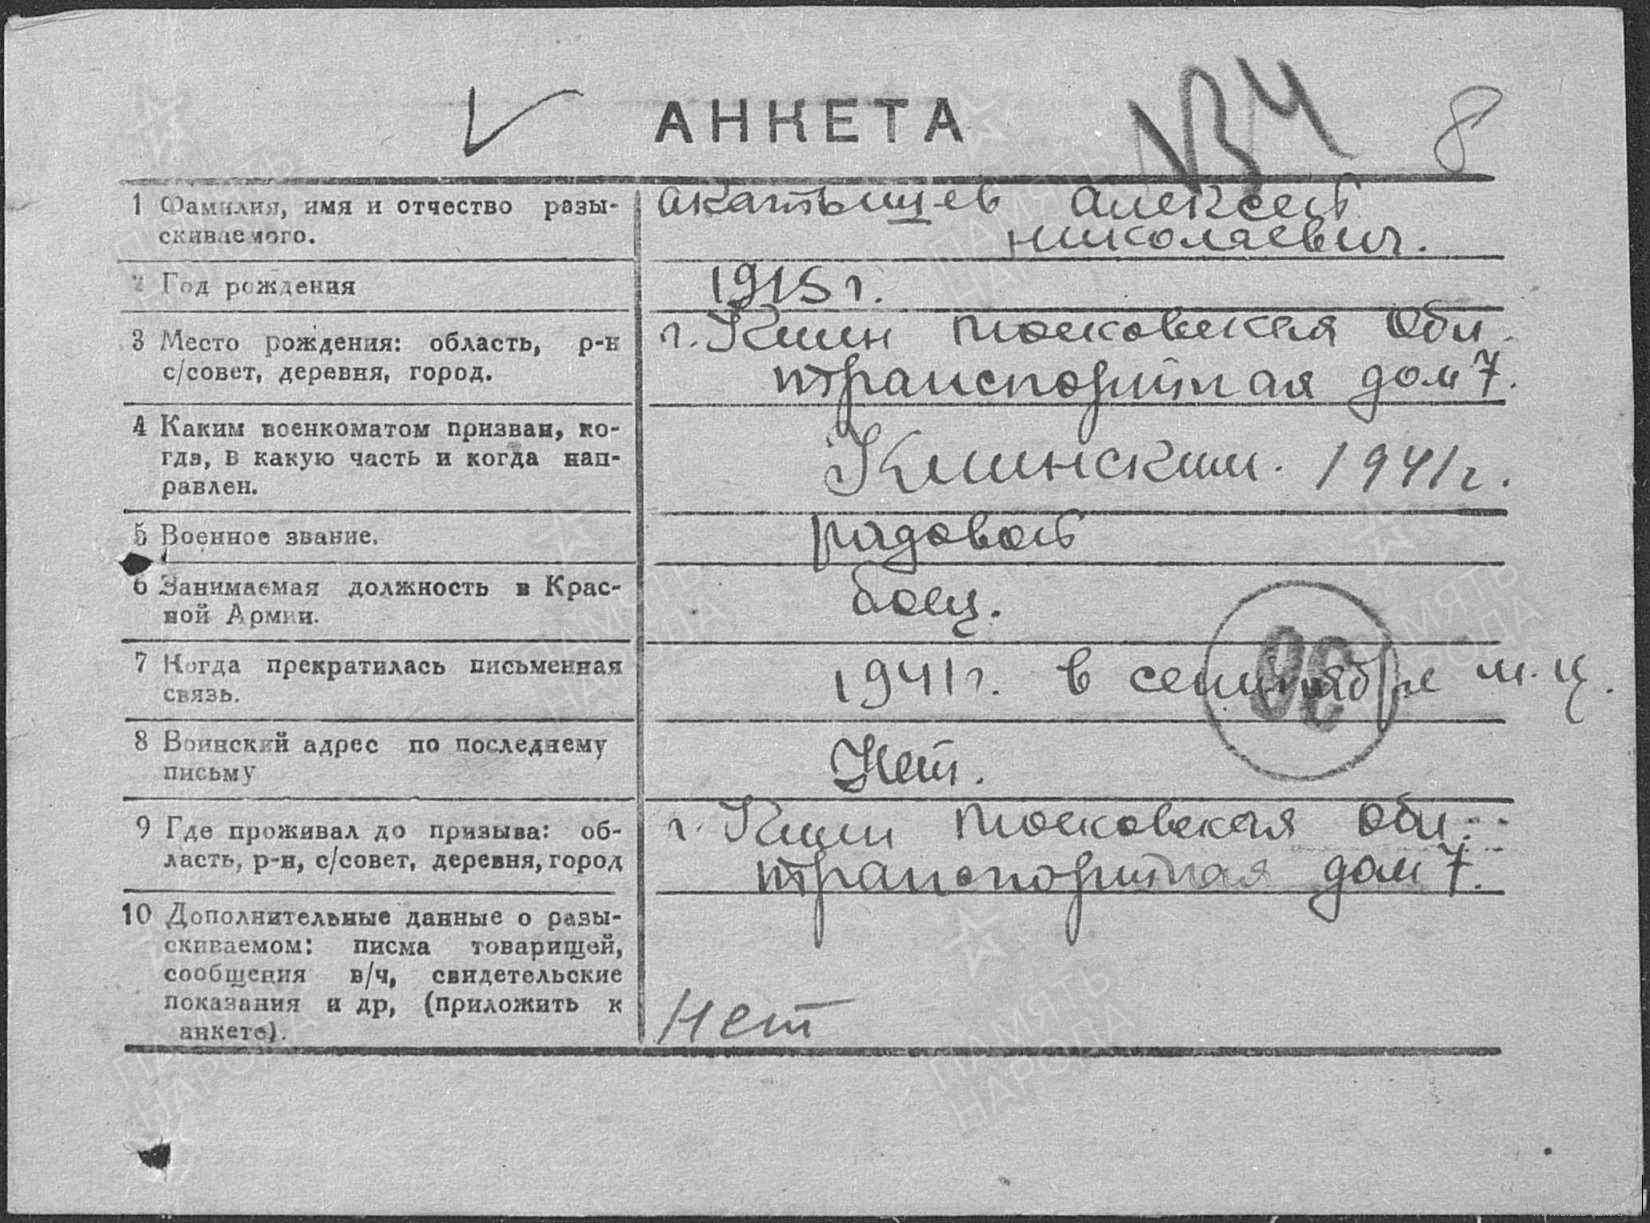 АНКЕТА
8
1 Фамилия, имя и отчество разы-
скиваемого.
Акатьищев Алексей
Николаевич.
2 Год рождения
1915 г.
3 Место рождения: область, р-н
с/совет, деревня, город.
г. Клин Московская Обл.
транспортная дом 7.
4 Каким военкоматом призван, ко-
гда, в какую часть и когда нап-
равлен.
Клинским. 1941 г.
5 Военное звание.
рядовой
6 Занимаемая должность в Крас-
ной Армии.
боец.
7 Когда прекратилась письменная
связь.
1941 г. в сентябре м-ц.
8 Воинский адрес по последнему
письму
Нет.
9 Где проживал до призыва: об-
ласть, р-н, с/совет, деревня, город
г. Клин Московская Обл.
транспортная дом 7.
10 Дополнительные данные о разы-
скиваемом: писма товарищей,
сообщения в/ч, свидетельские
показания и др, (приложить к
анкете).
Нет
ПАМЯТЬ
НАРОДА